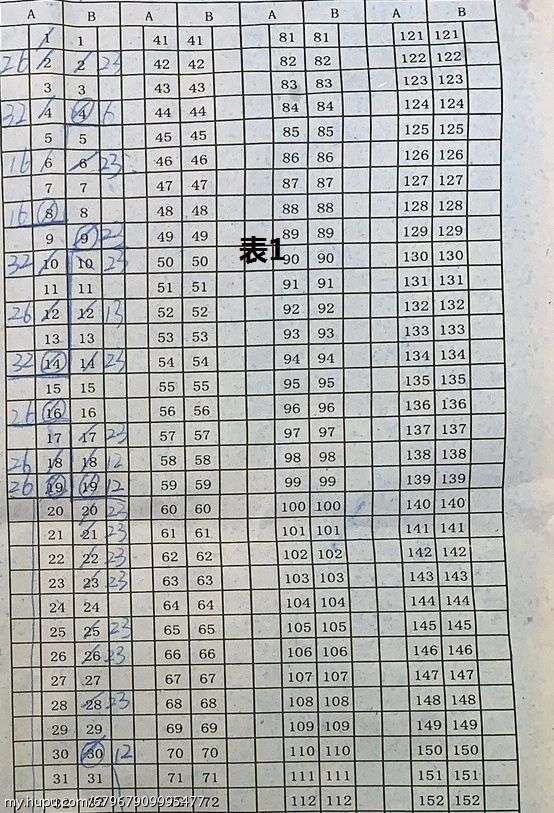 A B A B A B A B
1 1 41 41 81 81 121 121
26 2 2 23 42 42 82 82 122 122
3 3 43 43 83 83 123 123
32 4 4 6 44 44 84 84 124 124
5 5 45 45 85 85 125 125
16 6 6 23 46 46 86 86 126 126
7 7 47 47 87 87 127 127
16 8 8 48 48 88 88 128 128
9 9 22 49 49 89 89 129 129
表1
32 10 10 23 50 50 90 90 130 130
11 11 51 51 91 91 131 131
26 12 12 13 52 52 92 92 132 132
13 13 53 53 93 93 133 133
32 14 14 23 54 54 94 94 134 134
15 15 55 55 95 95 135 135
26 16 16 56 56 96 96 136 136
17 17 23 57 57 97 97 137 137
26 18 18 12 58 58 98 98 138 138
26 19 19 12 59 59 99 99 139 139
20 20 23 60 60 100 100 140 140
21 21 23 61 61 101 101 141 141
22 22 23 62 62 102 102 142 142
23 23 23 63 63 103 103 143 143
24 24 64 64 104 104 144 144
25 25 23 65 65 105 105 145 145
26 26 23 66 66 106 106 146 146
27 27 67 67 107 107 147 147
28 28 23 68 68 108 108 148 148
29 29 69 69 109 109 149 149
30 30 12 70 70 110 110 150 150
31 31 71 71 111 111 151 151
72 112 112 152 152